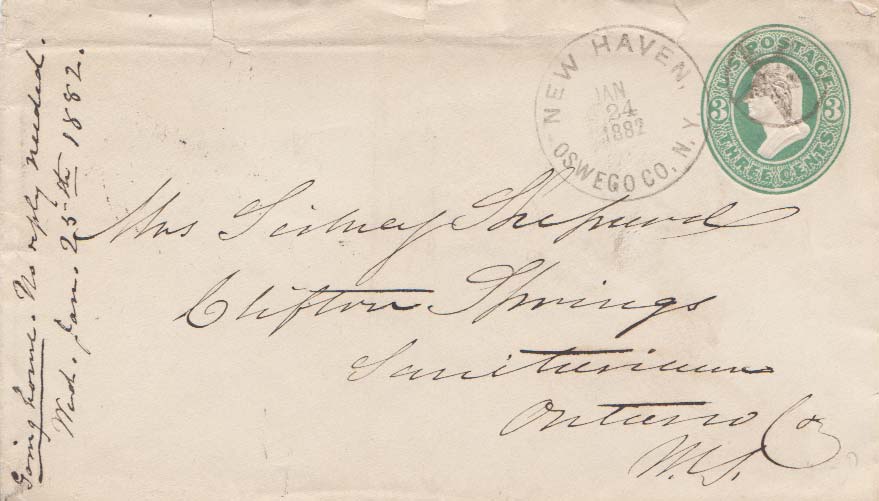 Going home. No reply needed.
Wed. Jan. 25th 1882.
NEW HAVEN,
JAN
24
1882
OSWEGO CO. N.Y.
U.S. POSTAGE
3 3
THREE CENTS
Mrs Sidney Shepard
Clifton Springs
Sanitarium
Ontario Co